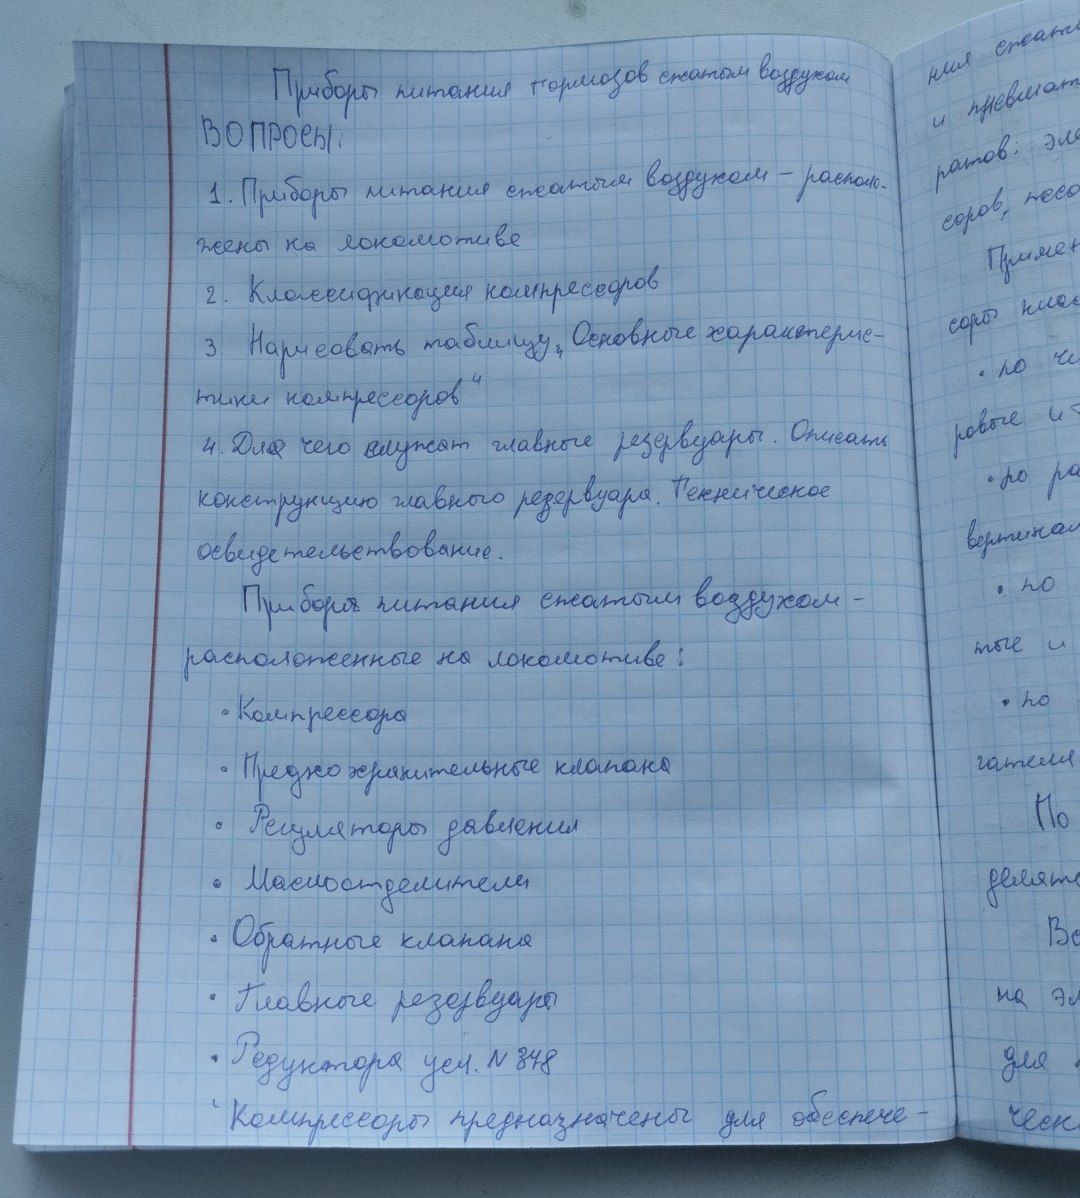 Приборы питания тормозов сжатым воздухом
ВОПРОСЫ:
1. Приборы питания сжатым воздухом – располо-
жены на локомотиве
2. Классификация компрессоров
3. Нарисовать таблицу „Основные характерис-
тики компрессоров“
4. Для чего служат главные резервуары. Описать
конструкцию главного резервуара. Техническое
освидетельствование.
Приборы питания сжатым воздухом –
расположенные на локомотиве:
• Компрессора
• Предохранительные клапана
• Регуляторы давления
• Маслоотделители
• Обратные клапана
• Главные резервуары
• Редуктора усл. N 348
Компрессоры предназначены для обеспече-
ния сжаты
и пневмат
ратов: эле
соров, песо
Примен
соры клас
• по чи
ровые и
• по ра
вертикал
• по
тые и
• по
гателя
По
делятс
Вс
на эл
для
ческ